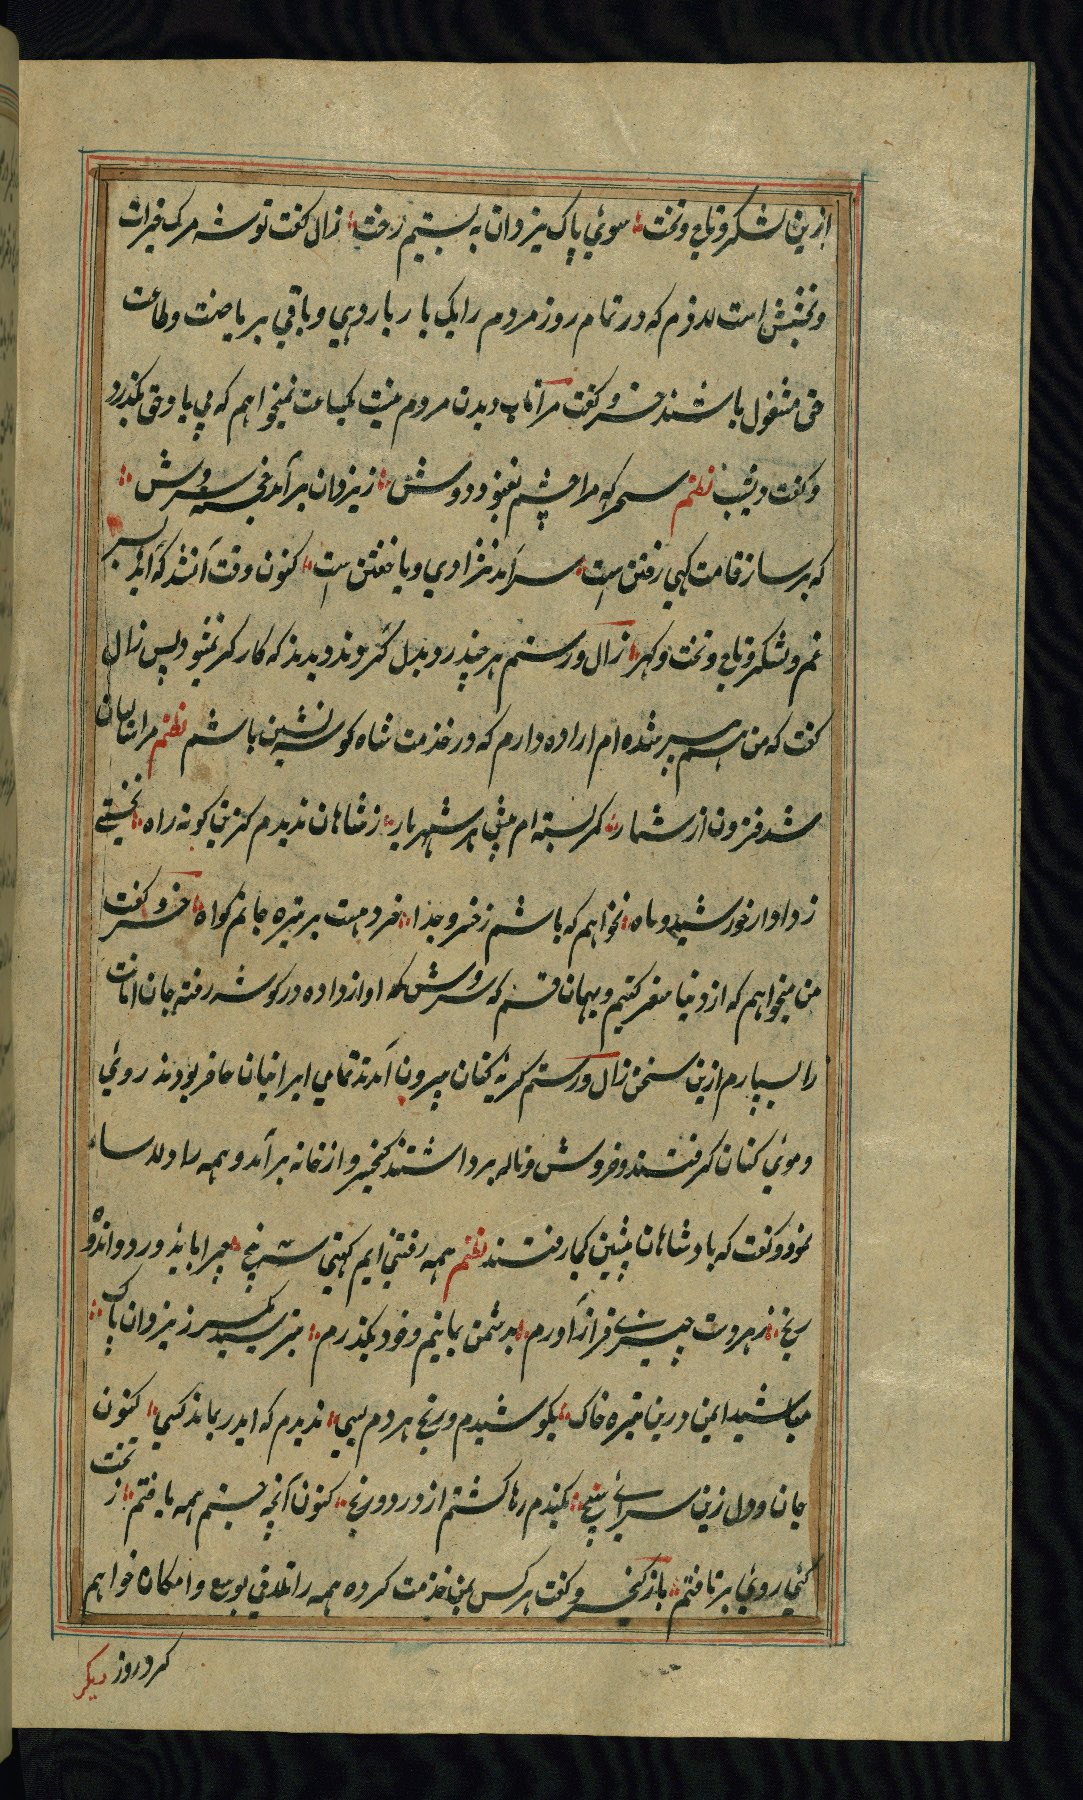 ازین لشکر و تاج و تخت سوی پاک یزدان به بستیم رخت زال گفت توشه مرک خیرات
و بخشش است لدزم که در تمام روز مردم را یک بار بار دهی و باقی بریاضت و طاعت
حق مشغول باشند خسرو کفت مرا تاب دیدن مردم نیست یکساعت نمیخواهم که بی یاد حق بکذرد
و کفت دیشب نظم سحرکه مرا چشم بغنود دوش زیزدان برآمد خجسته سروش
که برساز قامت کهی رفتن است سرآمد نژاوی و با خفتن است کنون وقت آنشد که آید بسر
غم و لشکر و تاج و تخت و کهر زال و رستم هر چند رد و بدل کردند دیدند که کارکر نمیشود پس زال
کفت که من هم پیر شده ام اراده دارم که در خدمت شاه کوشه نشین باشم نظم مرا سالیان
شد فزون از شمار کمر بسته ام پیش هر شهریار زشاهان ندیدم کزین کونه راه نجستی
ز دادار خورشید و ماه نخواهم که باشم ز خسرو جدا خرد هست بر تیره جانم کواه خسرو کفت
من میخواهم که از دنیا سفر کنیم و بهمان قسم که سروش مرا آواز داده در کوشه رفته جان امانت
را بسپارم ازین سخن زال و رستم کریه کنان بیرون آمدند تمامی ایرانیان حاضر بودند روی
و موی کنان کرفتند و خروش و ناله برداشتند کیخسرو از خانه برآمد و همه را دلاسا
نمود و کفت که پادشاهان پیشین کجا رفتند نظم همه رفتنی ایم کیتی سپنج چرا باید درد و اندوه
و رنج ز هر دست چیزی فراز آورم بدشمن بمانیم و خود بکذرم بترسید یکسر ز یزدان پاک
مباشید ایمن درین تیره خاک بکوشیدم و رنج بردم بسی ندیدم که ایدر بماند کسی کنون
جان و دل زین سرای سپنج بکندم رها کشتم از درد و رنج کنون آنچه جستم همه یافتم ز تخت
کئی روی برتافتم باز کیخسرو کفت هر کس بمن خدمت کرده همه را تلافی بوسع و امکان خواهم
کرد روز دیکر